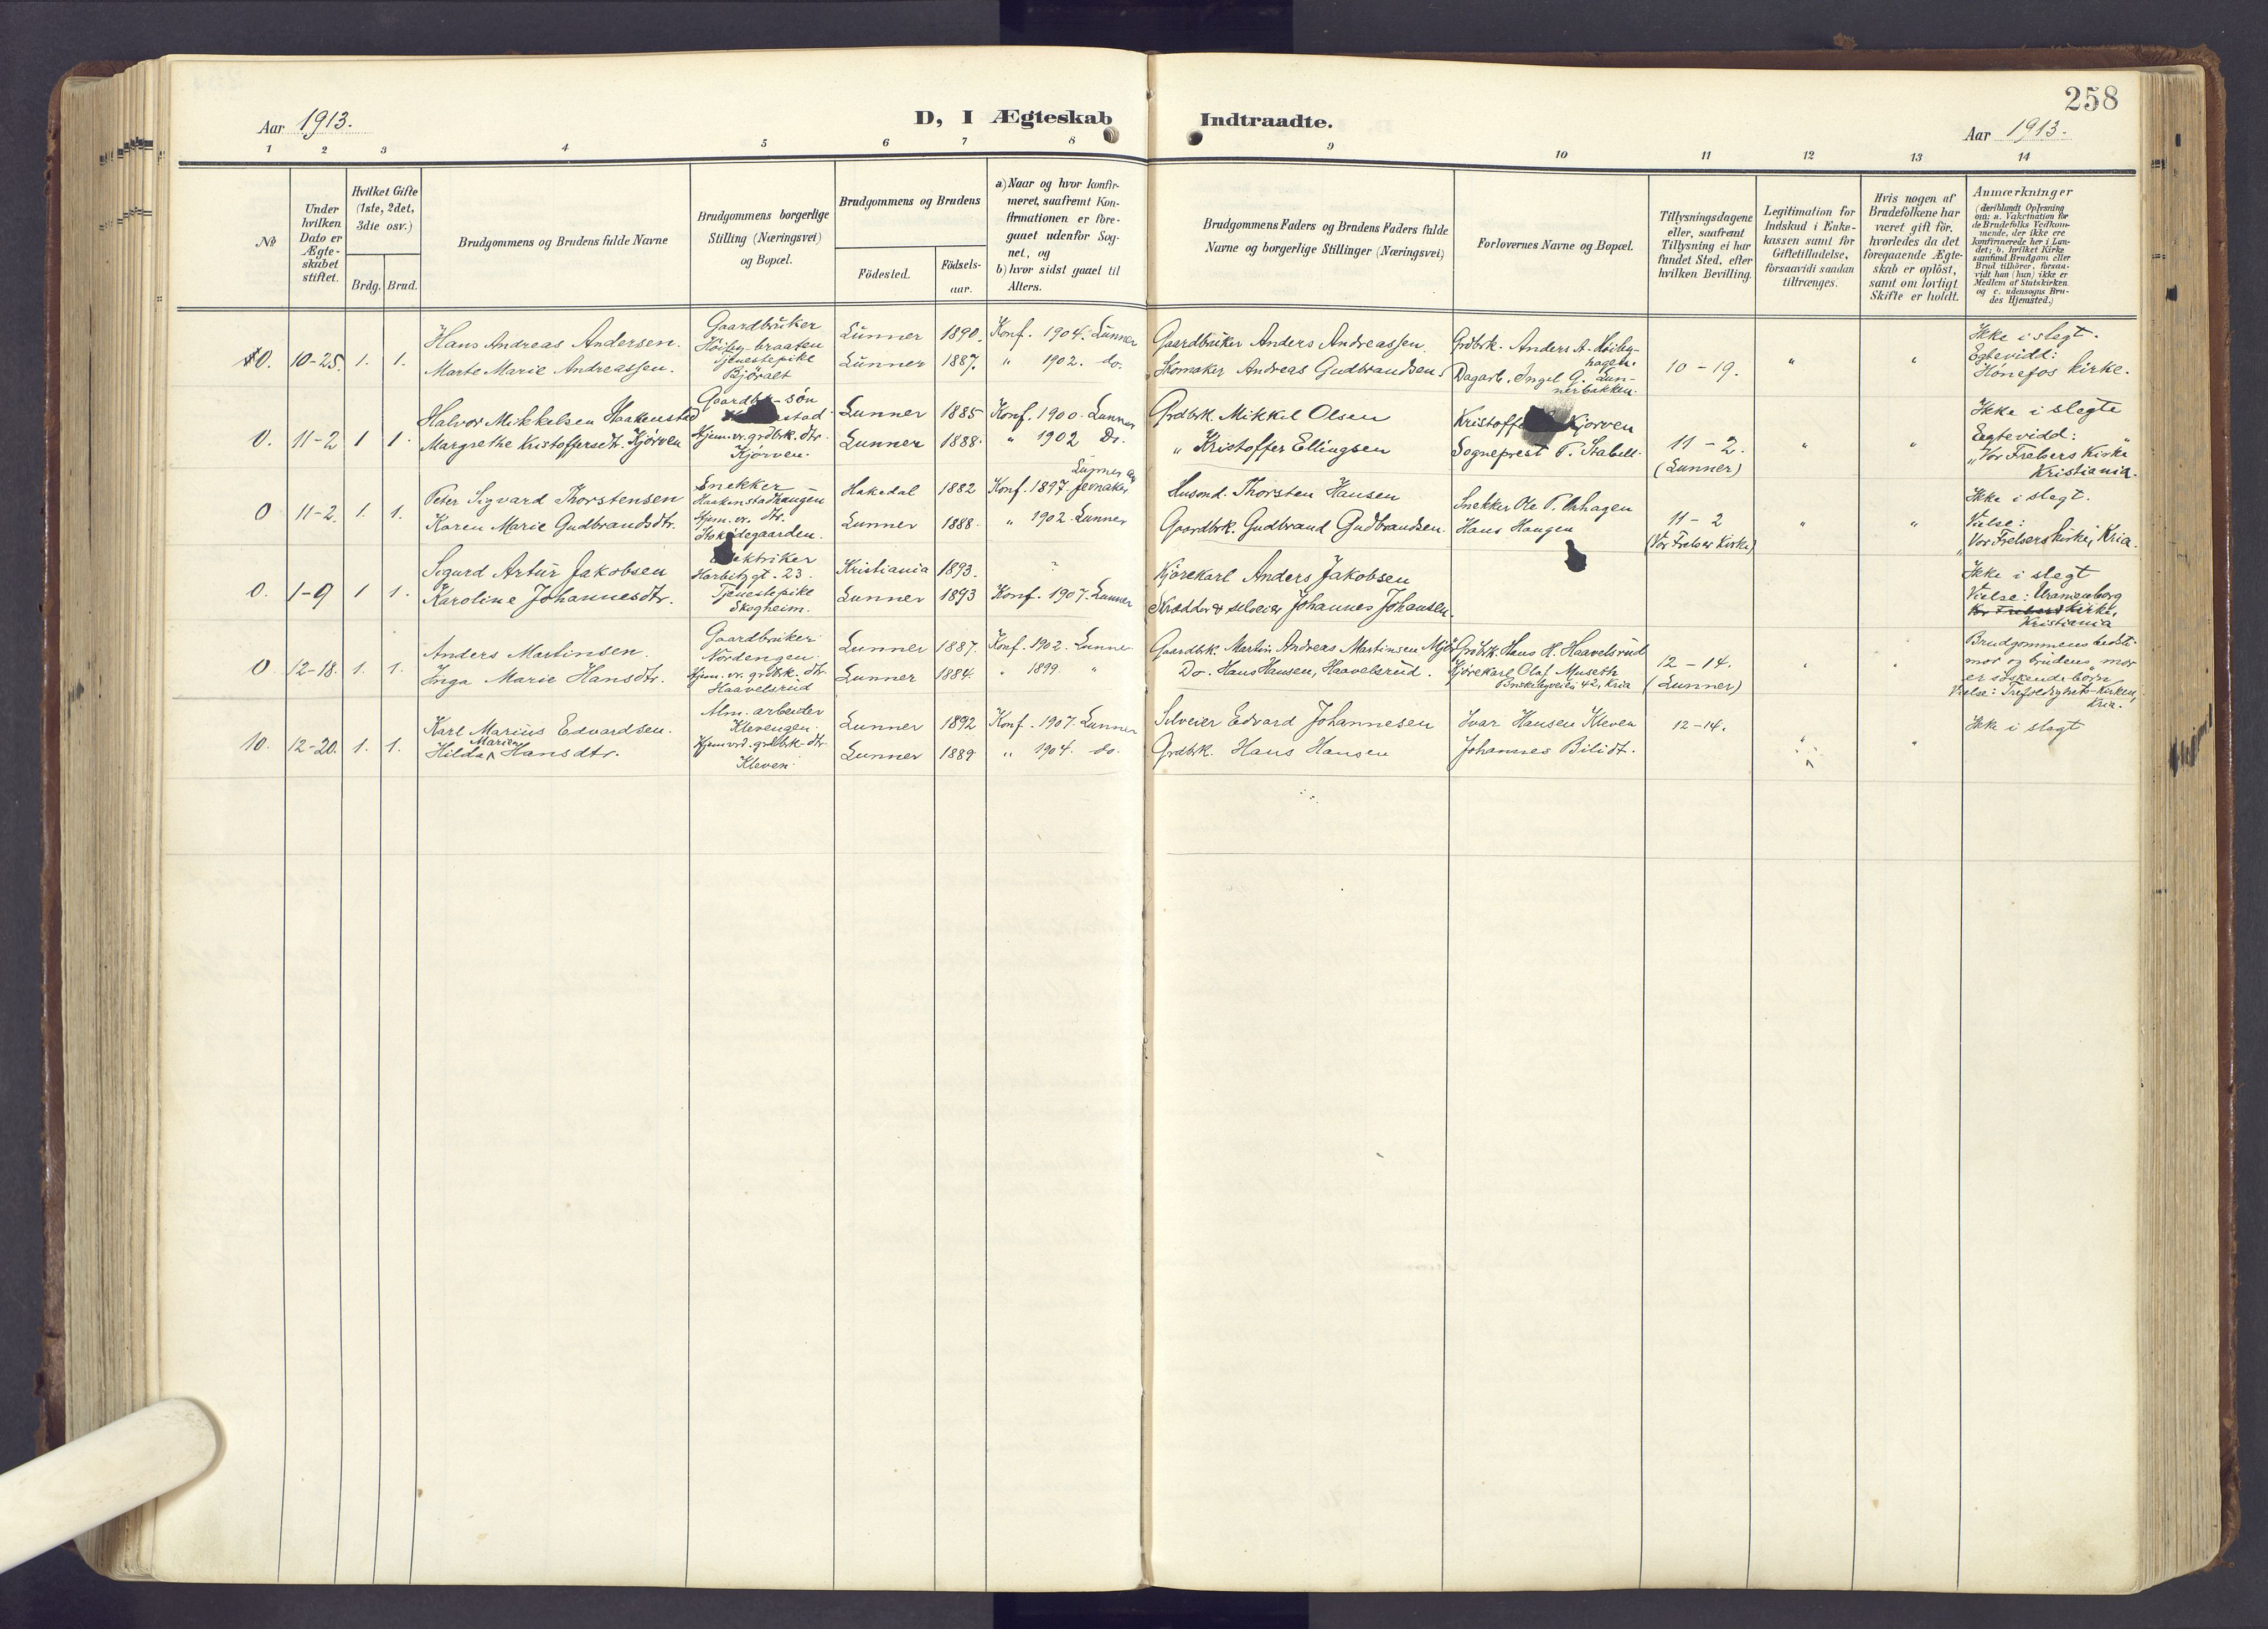 258
Aar 1913.
D, I Ægteskab Indtraadte.
Aar 1913.
1 2 3 4 5 6 7 8 9 10 11 12 13 14
No
Under
hvilken
Dato er
Ægte-
skabet
stiftet.
Hvilket Gifte
(1ste, 2det,
3die osv.)
Brdg. Brud.
Brudgommens og Brudens fulde Navne
Brudgommens borgerlige
Stilling (Næringsvei)
og Bopæl.
Brudgommens og Brudens
Födested.
Födsels-
aar.
a) Naar og hvor konfir-
meret, saafremt Kon-
firmationen er fore-
gaaet udenfor Sog-
net, og
b) hvor sidst gaaet til
Alters.
Brudgommens Faders og Brudens Faders fulde
Navne og borgerlige Stillinger (Næringsvei)
Forlovernes Navne og Bopæl.
Tillysningsdagene
eller, saafremt
Tillysning ei har
fundet Sted, efter
hvilken Bevilling.
Legitimation for
Indskud i Enke-
kassen samt for
Giftetilladelse,
forsaavidt saadan
tiltrænges.
Hvis nogen af
Brudefolkene har
været gift för,
hvorledes da det
foregaaende Ægte-
skab er oplöst,
samt om lovligt
Skifte er holdt.
Anmærkninger
(deriblandt Oplysning
om: a. Vakcination for
de Brudefolks Vedkom-
mende, der ikke ere
konfirmerede her i Lan-
det; b. hvilket Kirke
samfund Brudgom eller
Brud tilhörer, forsaa-
vidt han (hun) ikke er
Medlem af Statskirken.
og c. udensogns Bru-
des Hjemsted.)
0. 10-25. 1. 1.
Hans Andreas Andersen.
Marte Marie Andreassen.
Gaardbruker
Höiby-braaten
Tjenestepike
Björalt
Lunner 1890. Konf. 1904. Lunner
Lunner 1887. " 1902. do.
Gaardbruker Anders Andreassen.
Skomaker Andreas Gudbrandsen
Grdbrk. Anders A. Höiby-
hagen.
Dagarb. Ingel G. Lun-
nerbakken.
10-19. " "
Ikke i slegt.
Egtevidd:
Hönefos kirke.
0. 11-2 1 1.
Halvor Mikkelsen Haakenstad
Margrethe Kristoffersdt. Kjørven
Gaardbr-søn
stad
Hjem.v. grdbrk. dtr.
Kjørven.
Lunner 1885 Konf. 1900. Lunner
Lunner 1888. " 1902 Do.
Grdbrk. Mikkel Olsen
" Kristoffer Ellingsen
Kristoff Kjørven
Sogneprest P. Stabell.
11-2.
(Lunner)
" "
Ikke i slegte
Egtevidd:
"Vor Frelsers Kirke"
Kristiania.
0 11-2. 1. 1.
Peter Sigvard Thorstensen
Karen Marie Gudbrandsdtr.
Snekker
Haakenstadhaugen
Hjem. v. dtr.
degaarden.
Hakedal 1882 Konf. 1897. Jevnaker
Lunner 1888. " 1902. Lunner
Husmd. Thorsten Hansen
Gaardbrk. Gudbrand Gudbrandsen.
Snekker Ole P.
Hans Haugen
11-2
(Vor Frelser Kirke)
" "
Ikke i slegt.
Vielse:
Vor Frelsers kirke, Kria.
0. 1-9 1 1.
Sigurd Artur Jakobsen
Karoline Johannesdtr.
ektriker
Harbitzgt. 23.
Tjenestepike
Skogheim.
Kristiania 1893. "
Lunner 1893 Konf. 1907. Lunner
Kjørekarl Anders Jakobsen
Skrædder & selveier Johannes Johansen.
Ikke i slegt
Vielse: Uranienborg
Vor Frelsers Kirke,
Kristiania
0 12-18. 1. 1.
Anders Martinsen.
Inga Marie Hansdtr.
Gaardbruker
Nordengen.
Hjem. v. grdbrk. dtr.
Haavelsrud
Lunner 1887. Konf. 1902. Lunner
Lunner 1884. " 1899. "
Gaardbk. Martin Andreas Martinsen
Do. Hans Hansen, Haavelsrud.
Grdbrk. Hans H. Haavelsrud
Kjørekarl Olaf Museth
42, Kria
12-14.
(Lunner)
" "
Brudgommens bedste-
mor og brudens mor
er søskendebørn
Vielse: Trefoldigheds-Kirken,
Kria.
10. 12-20. 1. 1.
Karl Marius Edvardsen.
Marie
Hilda Hansdtr.
Alm. arbeider
Klevengen.
Hjemvd. grdbrk-dtr.
Kleven.
Lunner 1892 Konf. 1907. Lunner
Lunner 1889 " 1904. do.
Selveier Edvard Johannesen
Grdbrk. Hans Hansen
Ivar Hansen Kleven
Johannes Bilidt.
12-14. " "
Ikke i slegt